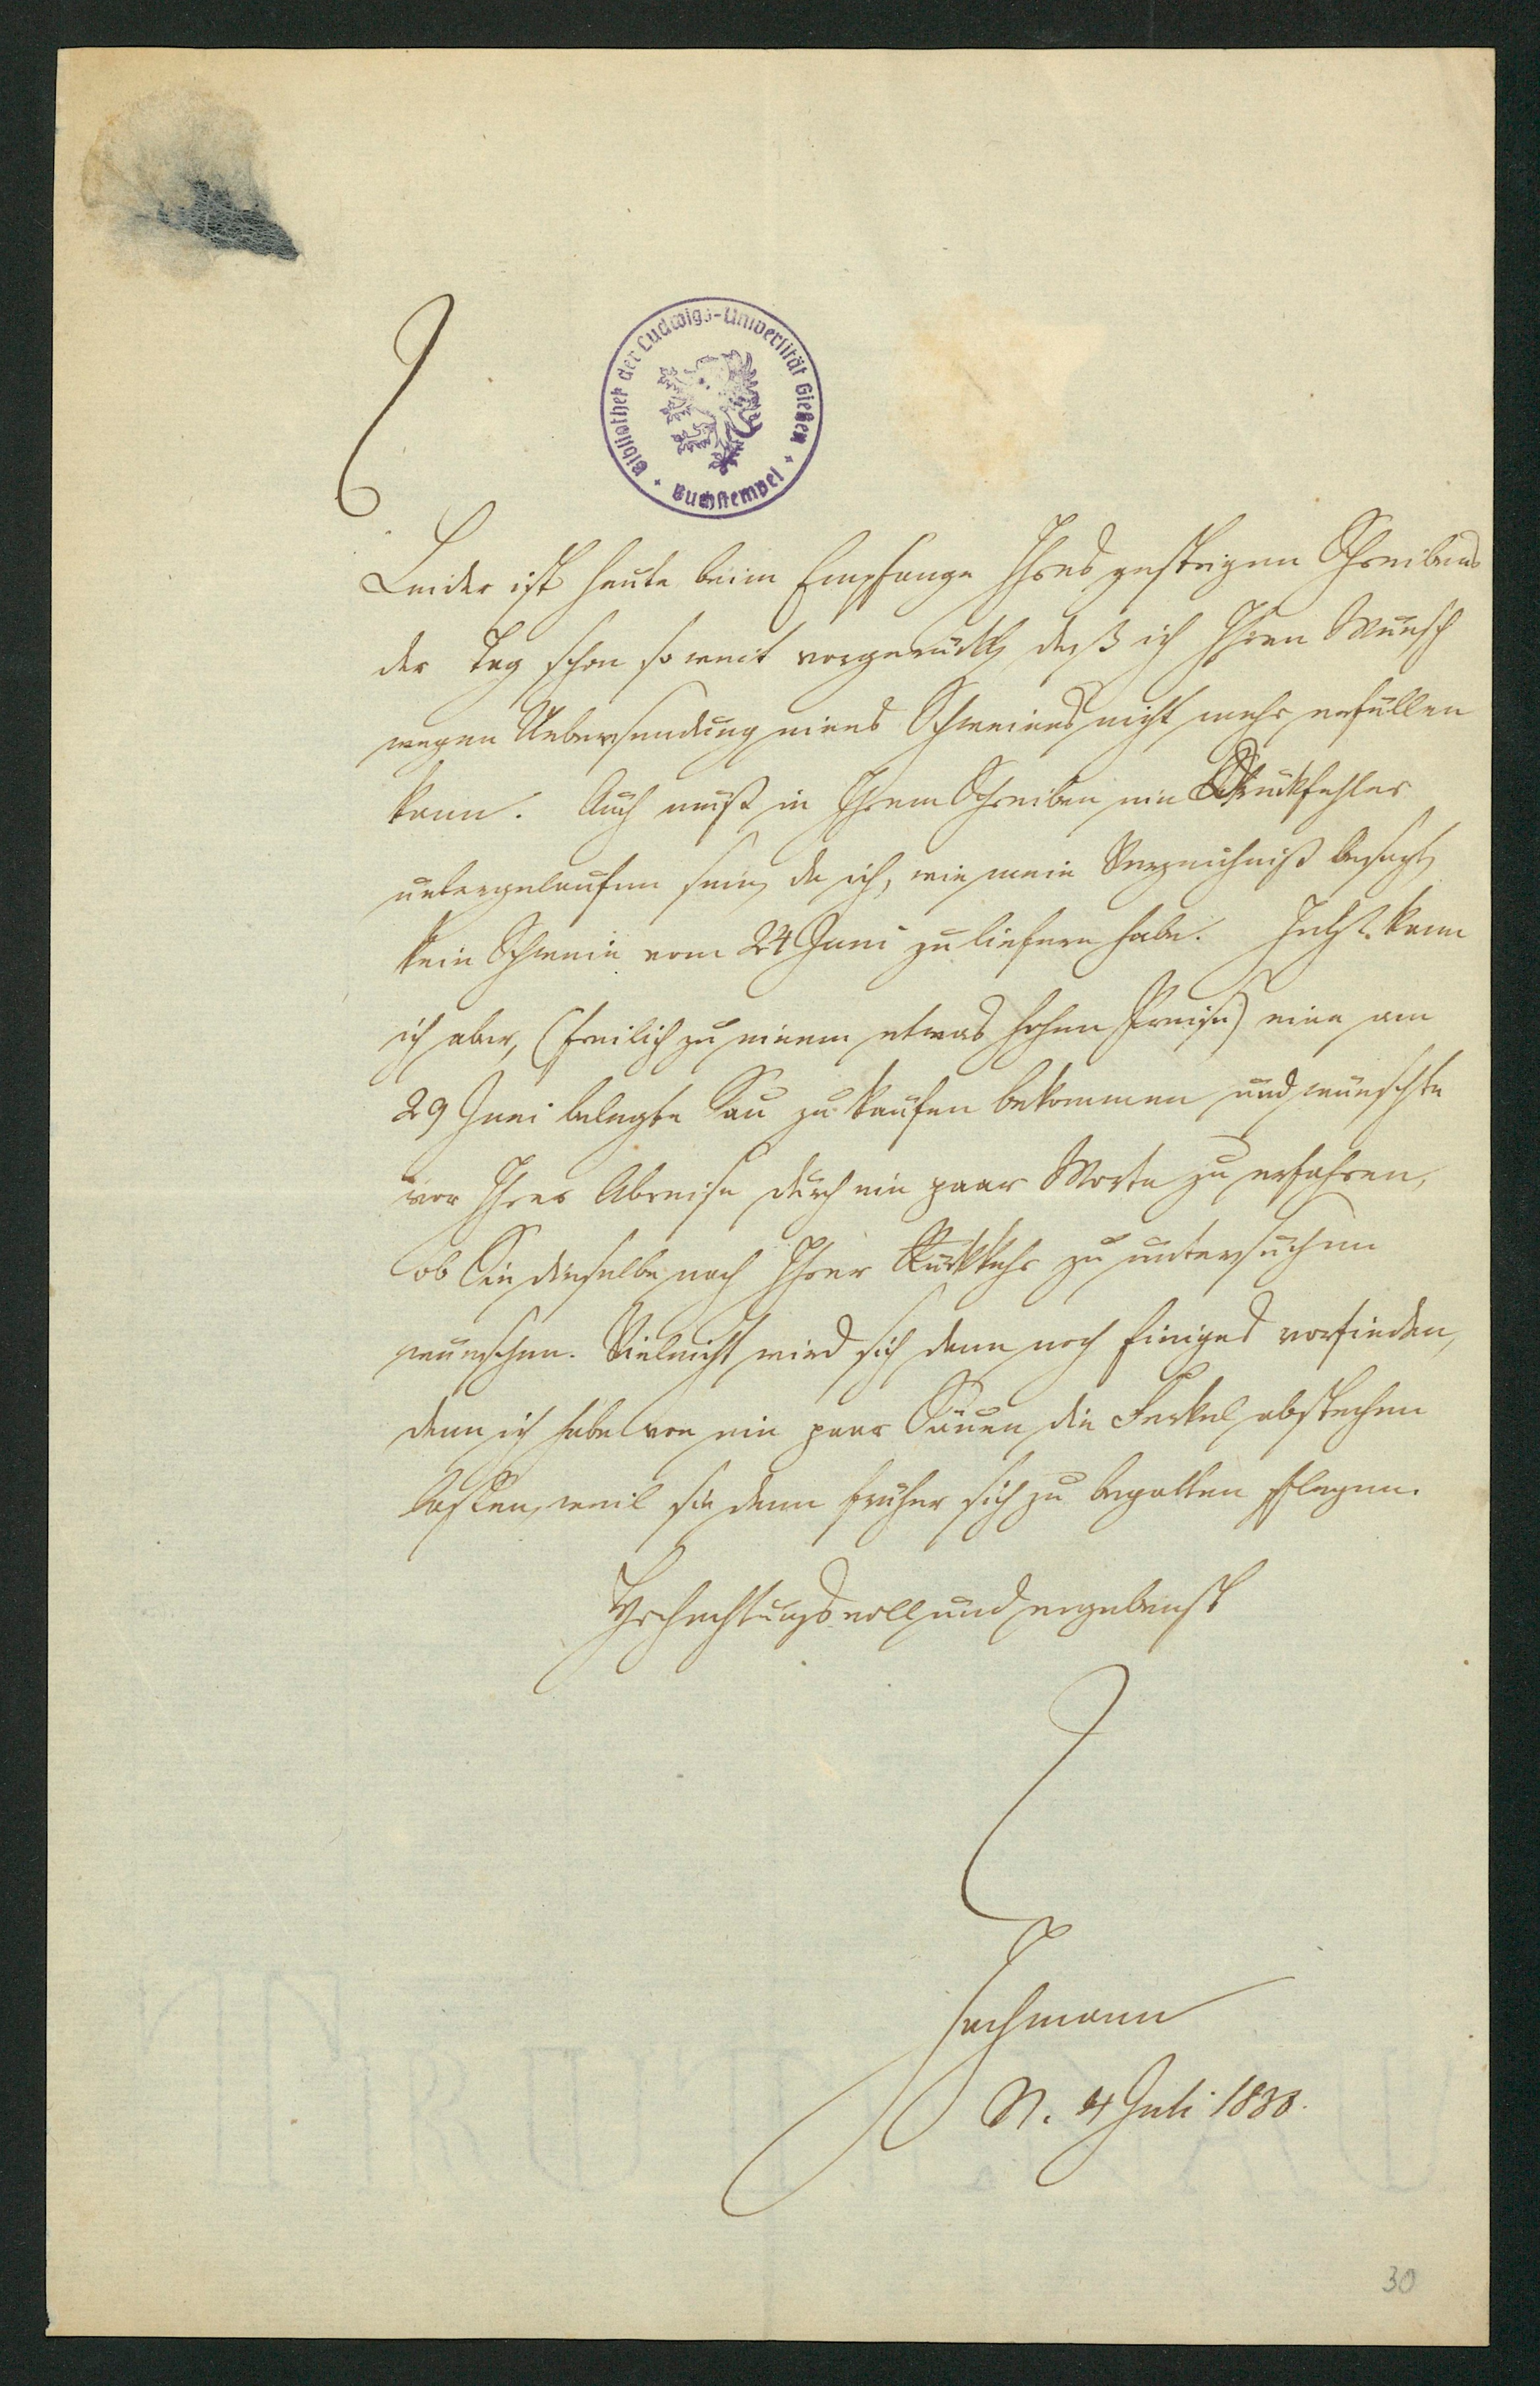 Bibliothek der Ludwigs-Universität Gießen
Buchstempel
Leider ist heute beim Empfange Ihres gestrigen Schreibens
der Tag schon so weit vorgerückt, daß ich Ihren Wunsch
wegen Uebersendung eines Schweines nicht mehr erfüllen
kann. Auch muß in Ihrem Schreiben ein Druckfehler
untergelaufen sein, da ich, wie mein Verzeichniß besagt,
kein Schwein vom 24 Juni zu liefern habe. Jetzt kann
ich aber, (freilich zu einem etwas hohen Preise) eine am
29 Juni belegte Sau zu kaufen bekommen und wünschte
vor Ihrer Abreise durch ein paar Worte zu erfahren,
ob Sie dieselbe nach Ihrer Rückkehr zu untersuchen
wünschen. Vieleicht wird sich dann noch Einiges vorfinden,
denn ich habe von ein paar Säuen die Ferkel abstechen
lassen, weil sie dann früher sich zu begatten pflegen.
Hochachtungsvoll und ergebenst
Jachmann
N. 4 Juli 1838.
30